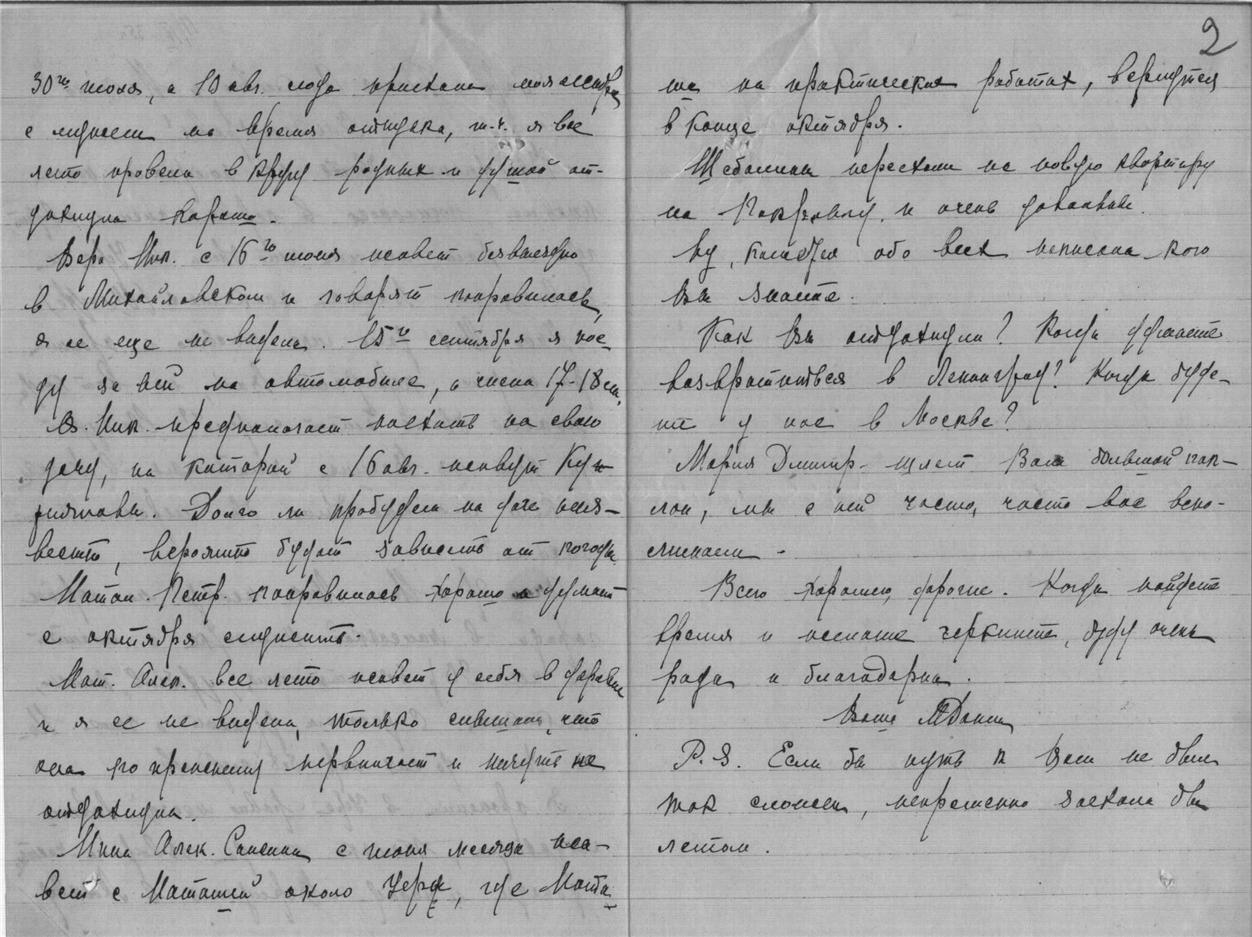 30го июля, а 10 авг. сюда приехала моя сестра
с мужем на время отпуска, т.ч. я все
лето провела в кругу родных и душой от-
дохнула хорошо.
Вера Ник. с 16го июня живет безвыездно
в Михайловском и говорят поправилась,
я ее еще не видела. 15го сентября я пое-
ду за ней на автомобиле, а числа 17-18 сен.
В. Ник. предполагает поехать на свою
дачу, на которой с 16 авг. живут
Долго ли пробудем на даче неиз-
вестно, вероятно будет зависеть от погоды.
Натал. Петр. поправилась хорошо и думает
с октября служить.
Нат. Алек. все лето живет у себя в деревне
и я ее не видела, только слышала, что
она по прежнему нервничает и ничуть не
отдохнула.
Анна Алек. с июня месяца жи-
вет с Наташей около где Ната-
ша на практических работах, вернутся
в конце октября.
Щебалины переехали на новую квартиру
на Покровку и очень довольны.
Ну, кажется обо всех написала кого
Вы знаете.
Как Вы отдохнули? Когда думаете
возвратиться в Ленинград? Когда буде-
те у нас в Москве?
Мария Дмитр. шлет Вам большой пок-
лон, мы с ней часто, часто вас вспо-
минаем.
Всего хорошего, дорогие. Когда найдете
время и желание черкните, буду очень
рада и благодарна.
Ваша
P.S. Если бы путь к Вам не был
так сложен, непременно заехала бы
летом.
2